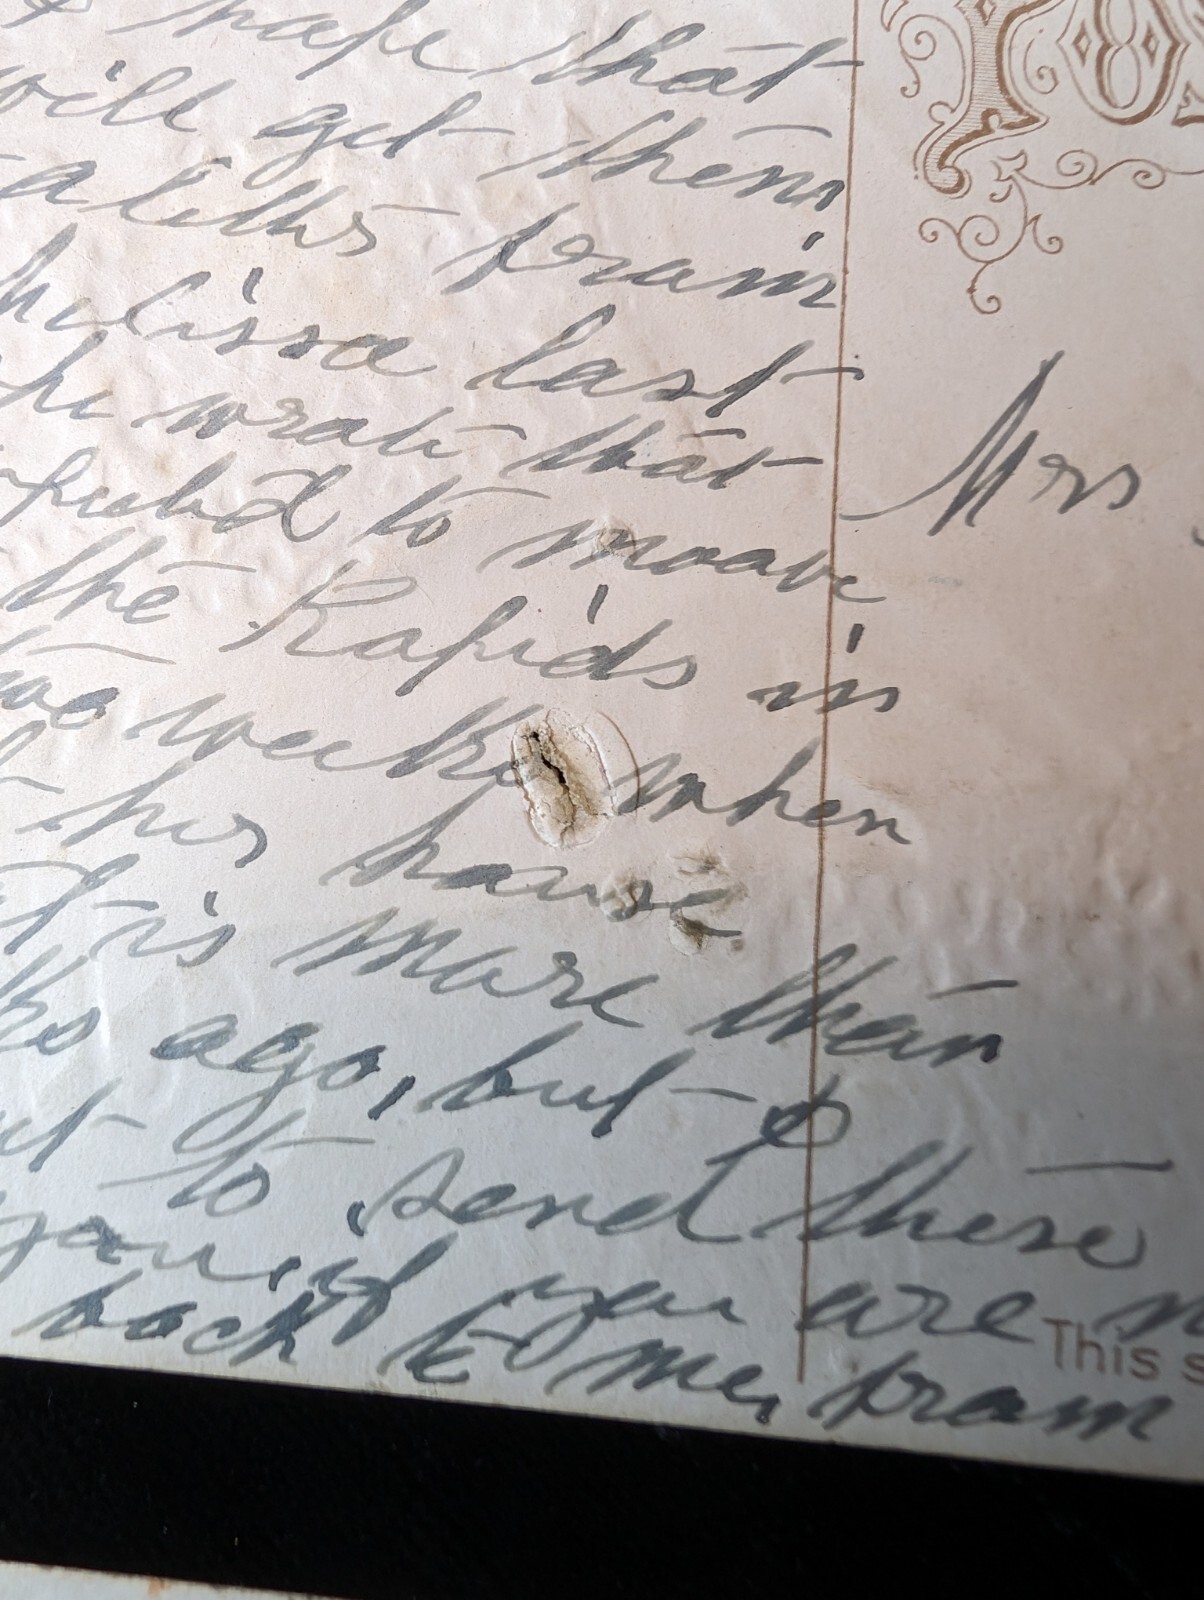 I hope that
will get them
a letter from
Melissa last
she wrate that
expected to moave
the Rapids in
two weeks when
his house
it is more than
ago, but I
to send these
you, if you are
back to me, from
POS
Mrs
This s